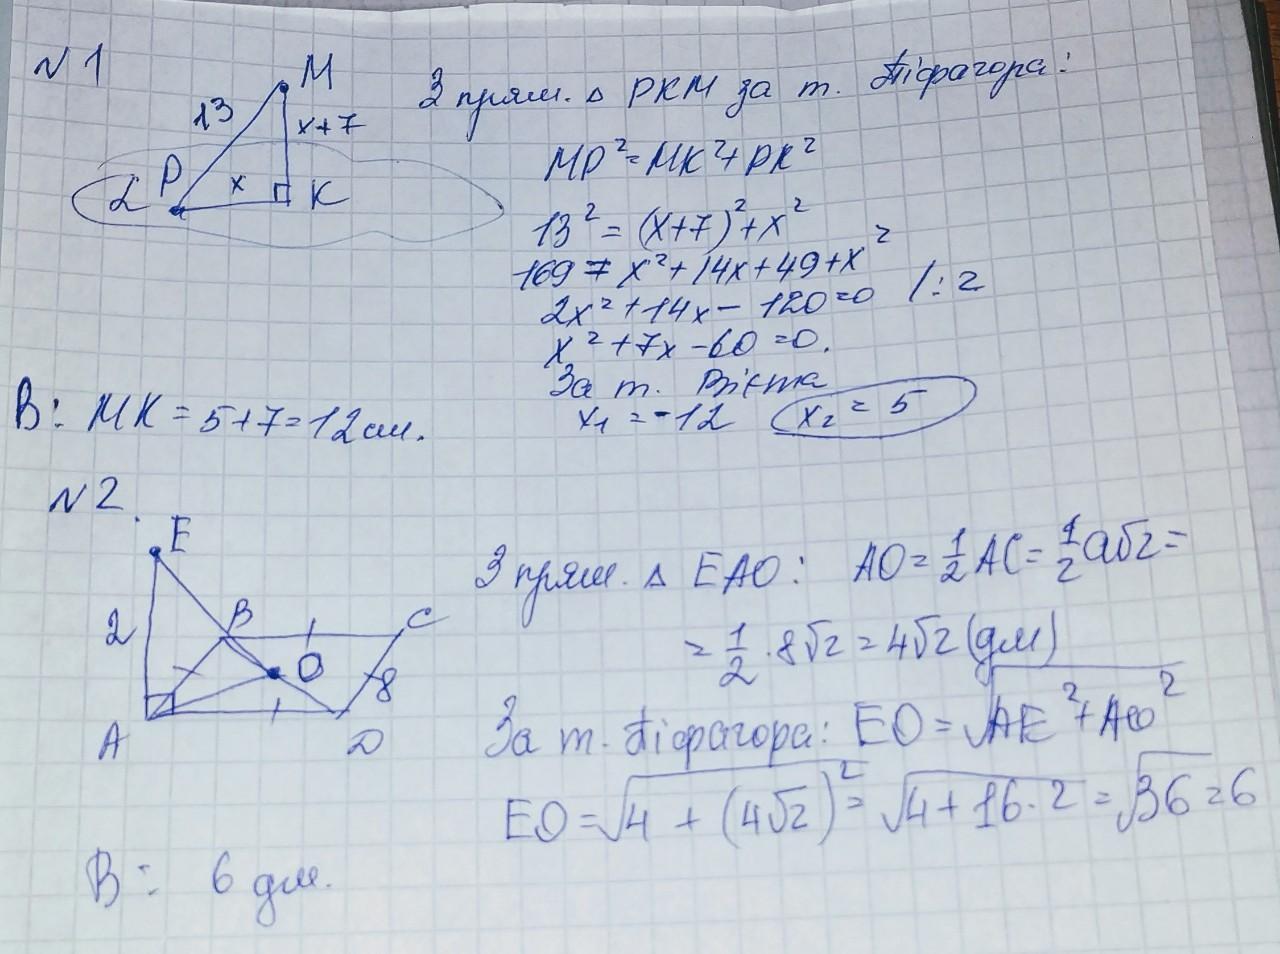 N 1
M
13
x+7
P
x
K
α
З прям. Δ PKM за т. Піфагора:
MP² = MK² + PK²
13² = (x+7)² + x²
169 = x² + 14x + 49 + x²
2x² + 14x - 120 = 0 /: 2
x² + 7x - 60 = 0.
За т. Вієта
x₁ = -12 x₂ = 5
В: MK = 5+7 = 12 см.
N 2.
E
2
B
C
O
8
A
D
З прям. Δ EAO: AO = 1/2 AC = 1/2 a√2 =
= 1/2 · 8√2 = 4√2 (дм)
За т. Піфагора: EO = √(AE² + AO²)
EO = √(4 + (4√2)²) = √(4 + 16·2) = √36 = 6
В: 6 дм.